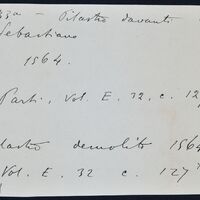 Pilastro davanti
Sebastiano
1564.
Parti, Vol. E. 32, c. 12
demolito 1564
Vol. E. 32 c. 127